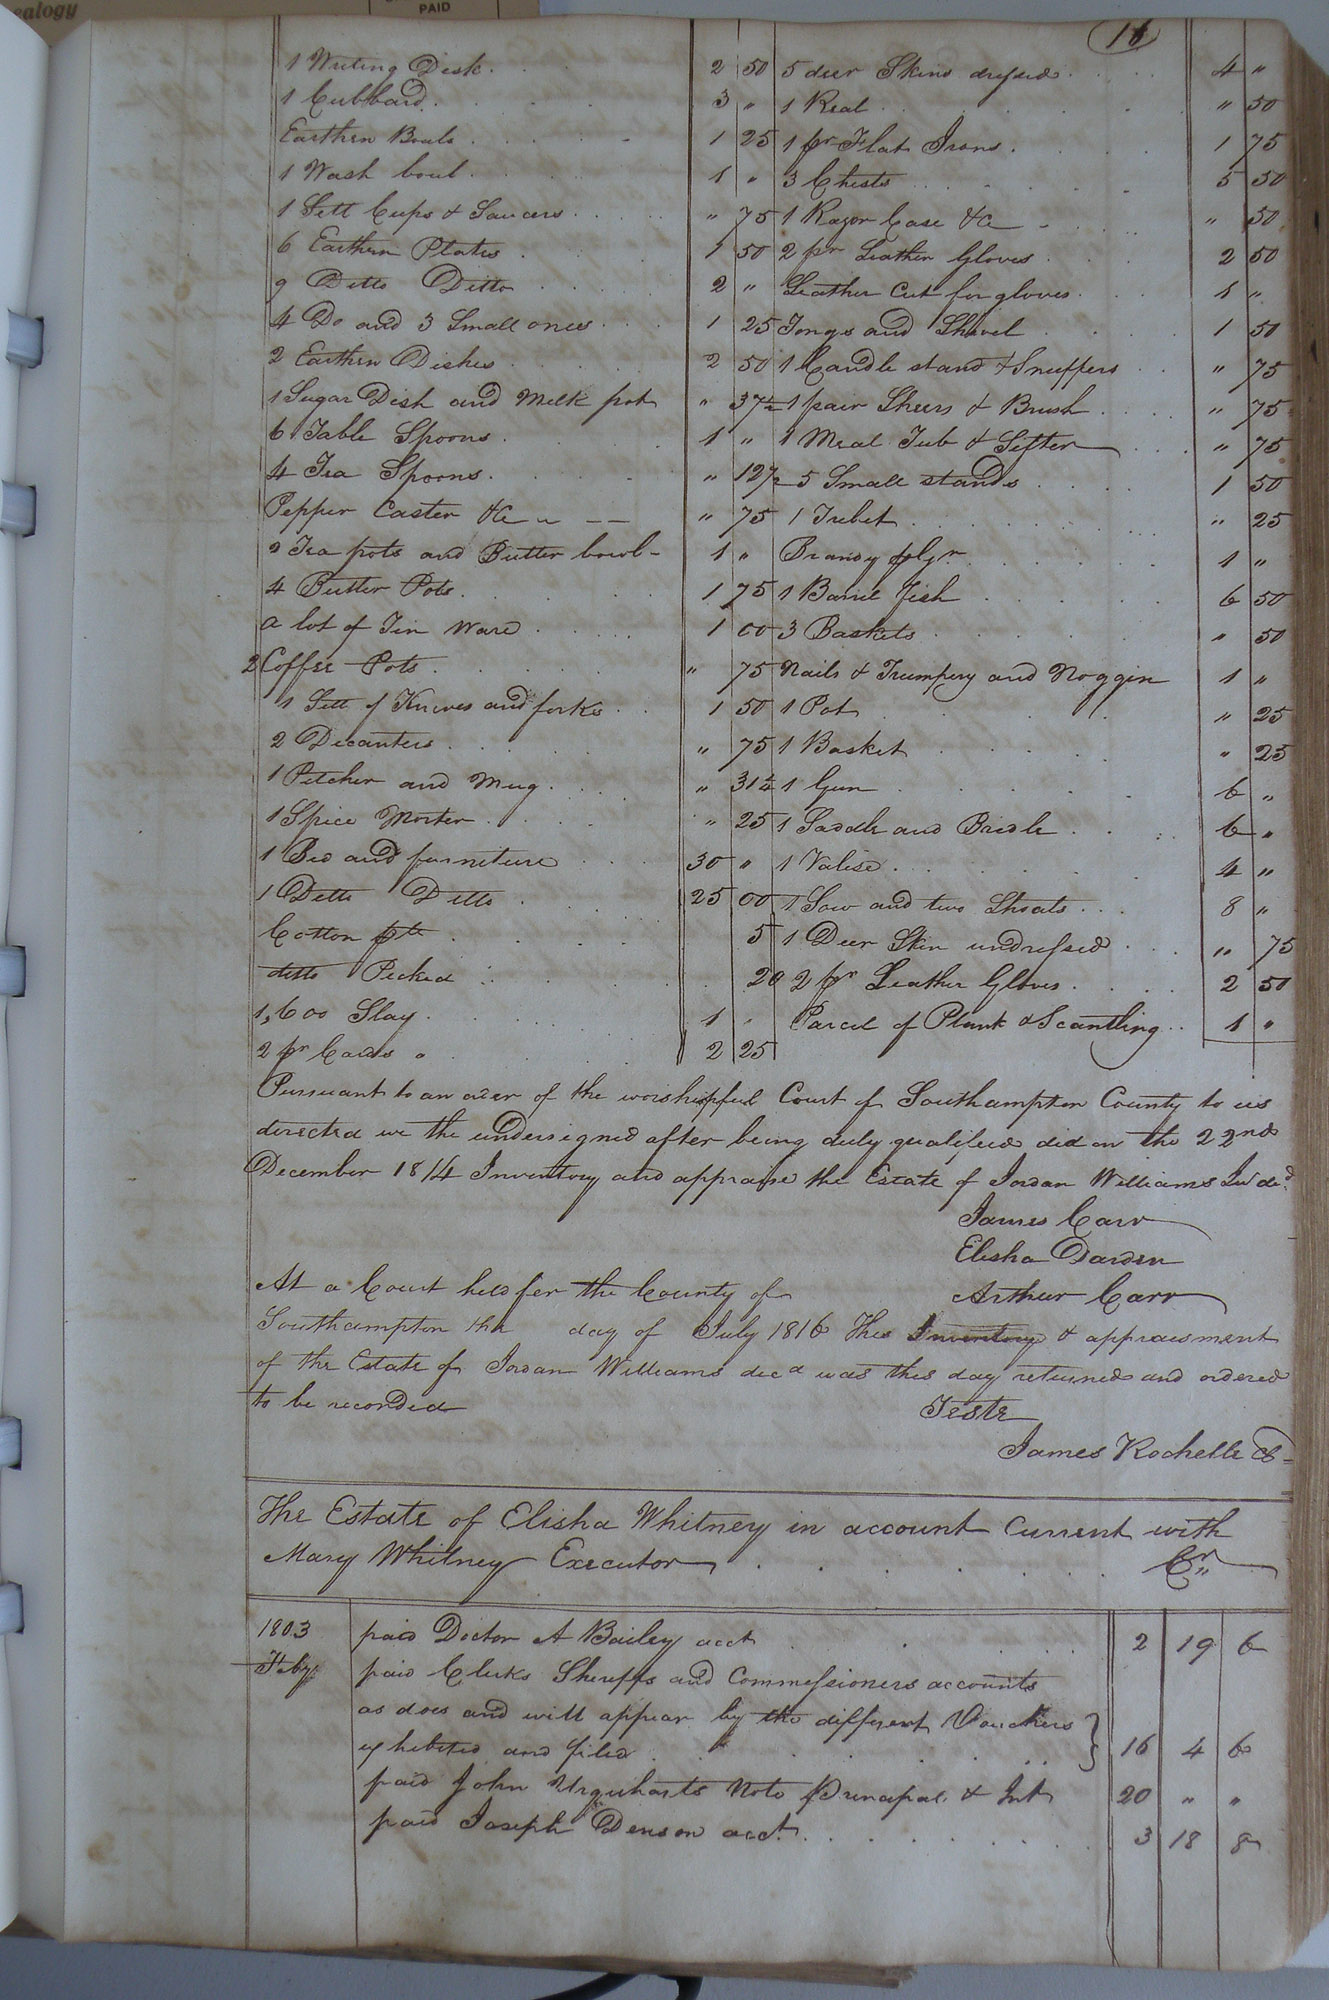 ealogy
PAID
16
1 Writing Desk 2 50
1 Cubbard 3 "
Earthen Bouls 1 25
1 Wash boul 1 "
1 Sett Cups & Saucers " 75
6 Earthen Plates 1 50
9 Ditto Ditto 2 "
4 Do and 3 Small ones 1 25
2 Earthen Dishes 2 50
1 Sugar Dish and Milk pot " 37½
6 Table Spoons 1 "
4 Tea Spoons " 12½
Pepper Caster &c " 75
2 Tea pots and Butter bowl 1 "
4 Butter Pots 1 75
a lot of Tin Ware 1 00
2 Coffee Pots " 75
1 Sett of Knives and forks 1 50
2 Decanters " 75
1 Pitcher and Mug " 31¼
1 Spice Morter " 25
1 Bed and furniture 30 "
1 Ditto Ditto 25 00
Cotton 5
ditto Picked 20
1,600 Slay 1
2 pr Cards 2 25
5 deer Skins dressed 4 "
1 Real " 50
1 pr Flat Irons 1 75
3 Chests 5 50
1 Razor Case &c " 50
2 pr Leather Gloves 2 50
Leather Cut for gloves 1 "
Tongs and Shovel 1 50
1 Candle stand & Snuffers " 75
1 pair Sheers & Brush " 75
1 Meal Tub & Sifter " 75
5 Small stands 1 50
1 Trebet " 25
Brandy 1 "
1 Barrel fish 6 50
3 Baskets " 50
Nails & Trumpery and Noggin 1 "
1 Pot " 25
1 Basket " 25
1 Gun 6 "
1 Saddle and Bridle 6 "
1 Valise 4 "
1 Sow and two Shoats 8 "
1 Deer Skin undressed " 75
2 pr Leather Gloves 2 50
Parcel of Plank & Scantling 1 "
Pursuant to an order of the worshipful Court of Southampton County to us
directed we the undersigned after being duly qualified did on the 22nd
December 1814 Inventory and appraise the Estate of Jordan Williams decd.
James Carr
Elisha Darden
Arthur Carr
At a Court held for the County of
Southampton the day of July 1816 This Inventory & appraisment
of the Estate of Jordan Williams decd was this day returned and ordered
to be recorded
Teste
James Rochelle
The Estate of Elisha Whitney in account Current with
Mary Whitney Executor Cr
1803 paid Doctor A Bailey acct 2 19 6
Feby paid Clerks Sheriffs and Commessioners accounts
as does and will appear by the different Vouchers
exhebited and filed 16 4 6
paid John Urquharts Note Principal & Int 20 " "
paid Joseph Denson acct. 3 18 8